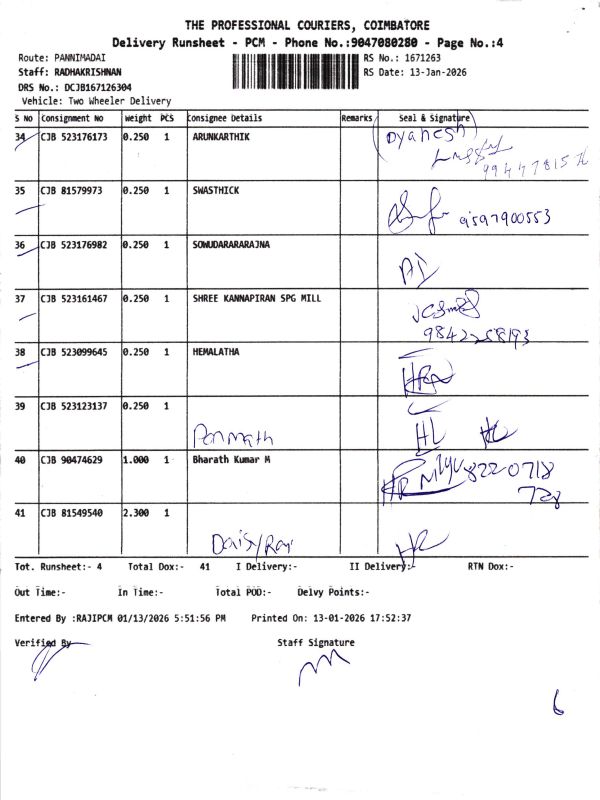 THE PROFESSIONAL COURIERS, COIMBATORE
Delivery Runsheet - PCM - Phone No.:9047080280 - Page No.:4
Route: PANNIMADAI
RS No.: 1671263
Staff: RADHAKRISHNAN
RS Date: 13-Jan-2026
DRS No.: DCJB167126304
Vehicle: Two Wheeler Delivery
S No Consignment No Weight PCS Consignee Details Remarks Seal & Signature
34 CJB 523176173 0.250 1 ARUNKARTHIK
35 CJB 81579973 0.250 1 SWASTHICK
9597900553
36 CJB 523176982 0.250 1 SOWUDARARARAJNA
37 CJB 523161467 0.250 1 SHREE KANNAPIRAN SPG MILL
9842258193
38 CJB 523099645 0.250 1 HEMALATHA
39 CJB 523123137 0.250 1
40 CJB 90474629 1.000 1 Bharath Kumar M
8220718
728
41 CJB 81549540 2.300 1
Tot. Runsheet:- 4 Total Dox:- 41 I Delivery:- II Delivery:- RTN Dox:-
Out Time:- In Time:- Total POD:- Delvy Points:-
Entered By :RAJIPCM 01/13/2026 5:51:56 PM Printed On: 13-01-2026 17:52:37
Verified By Staff Signature
6